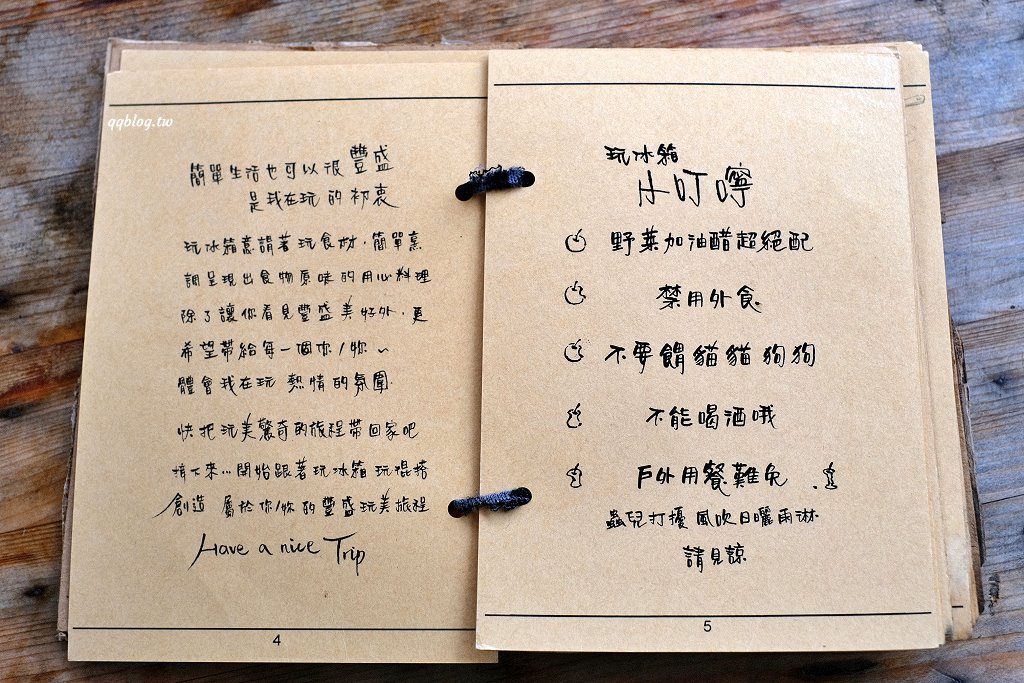 qqblog.tw
簡單生活也可以很豐盛
是我在玩的初衷
玩冰箱意謂著玩食材．簡單烹
調呈現出食物原味的用心料理
除了讓你看見豐盛美好外．更
希望帶給每一個你/妳~
體會我在玩 熱情的氛圍．
快把玩美驚奇的旅程帶回家吧
接下來...開始跟著玩冰箱 玩混搭
創造 屬於你/妳的豐盛玩美旅程
Have a nice Trip
4
玩冰箱
小叮嚀
野菜加油醋超絕配
禁用外食
不要餵貓貓狗狗
不能喝酒哦
戶外用餐難免
蟲兒打擾 風吹日曬雨淋
請見諒
5